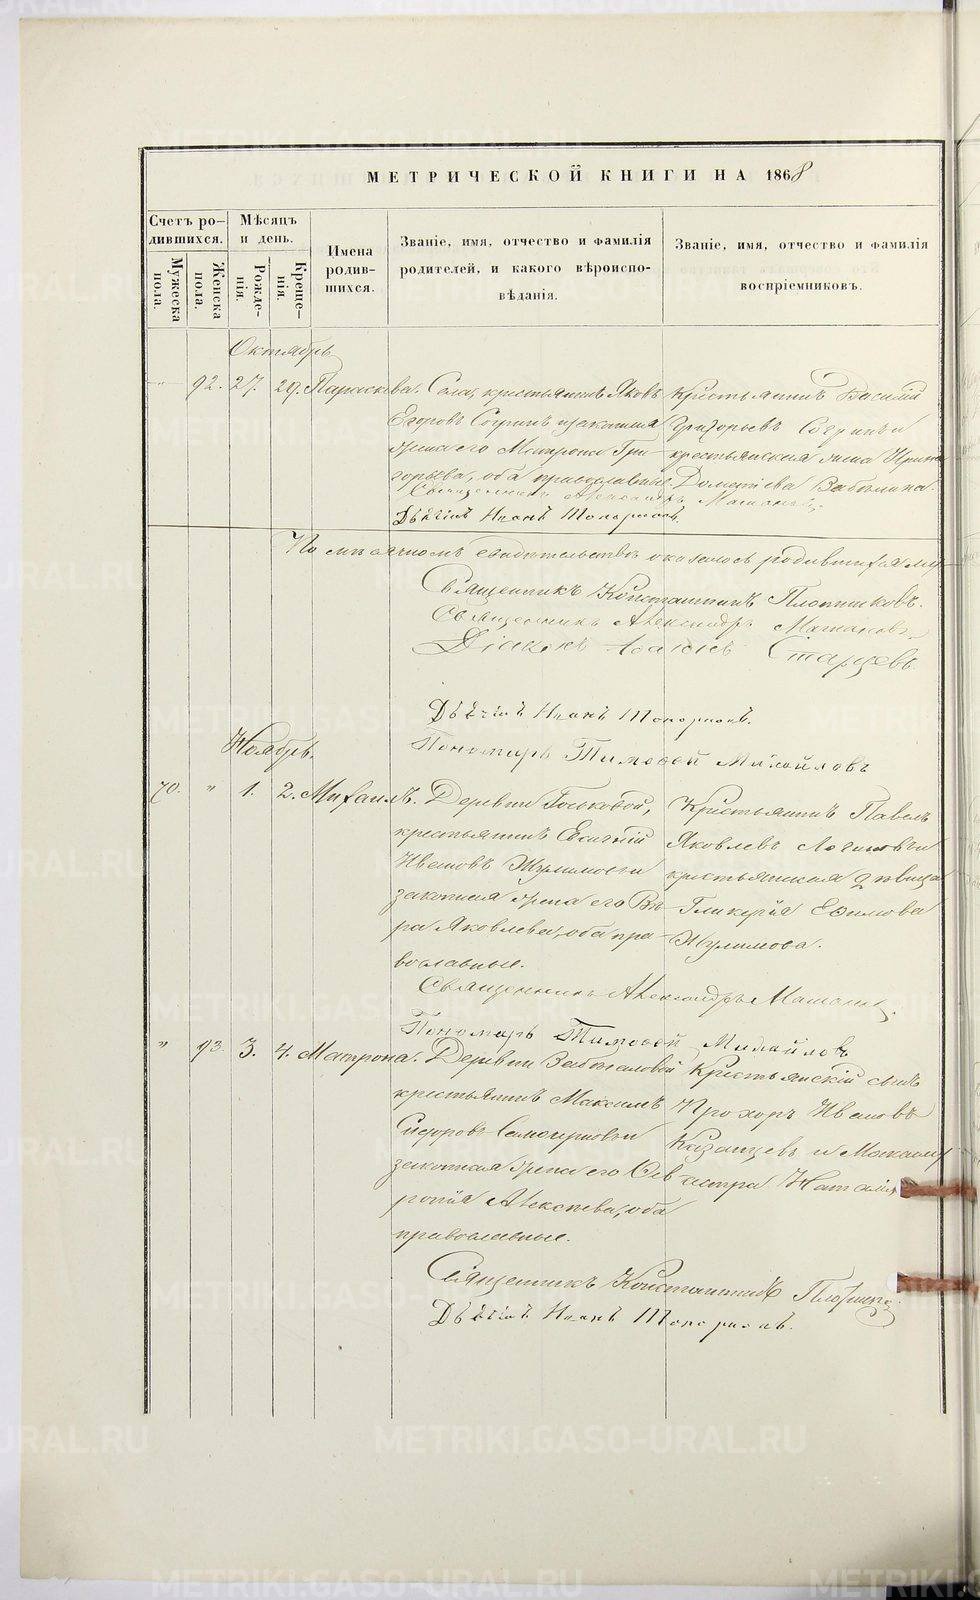 МЕТРИЧЕСКОЙ КНИГИ НА 1868
Счетъ ро-
дившихся.
Мужеска
пола.
Женска
пола.
Мѣсяцъ
и день.
Рожде-
нія.
Креще-
нія.
Имена
родив-
шихся.
Званіе, имя, отчество и фамилія
родителей, и какого вѣроиспо-
вѣданія.
Званіе, имя, отчество и фамилія
воспріемниковъ.
Октябрь
" 92. 27. 29. Параскева. Села, крестьянинъ Яковъ
Егоровъ и законная
жена его Матрона Гри-
горьева, оба православные.
Крестьянинъ Василій
Григорьевъ и
крестьянская жена Ирина
Дометіева
Священникъ Александръ
Дьячекъ Иванъ Топорковъ.
По мѣсячномъ свидѣтельствѣ оказалось родившихся
Священникъ Константинъ Плотниковъ.
Священникъ Александръ
Діаконъ Старцевъ
Дьячекъ Иванъ Топорковъ.
Пономарь Тимофей Михайловъ
Ноябрь.
70. " 1. 2. Михаилъ. Деревни
крестьянинъ Евгеній
Ивановъ Жулимовъ и
законная жена его Вѣ-
ра Яковлева, оба пра-
вославные.
Крестьянинъ Павелъ
Яковлевъ и
крестьянская дѣвица
Гликерія Ефимова
Жулимова.
Священникъ Александръ
Пономарь Тимофей Михайловъ
" 93. 3. 4. Матрона. Деревни
крестьянинъ Максимъ
Сидоровъ и
законная жена его Ев-
ропія Алексѣева, оба
православные.
Крестьянскій сынъ
Прохоръ Ивановъ
Казанцевъ и
сестра Наталія
Священникъ Константинъ
Дьячекъ Иванъ Топорковъ.
METRIKI.GASO-URAL.RU